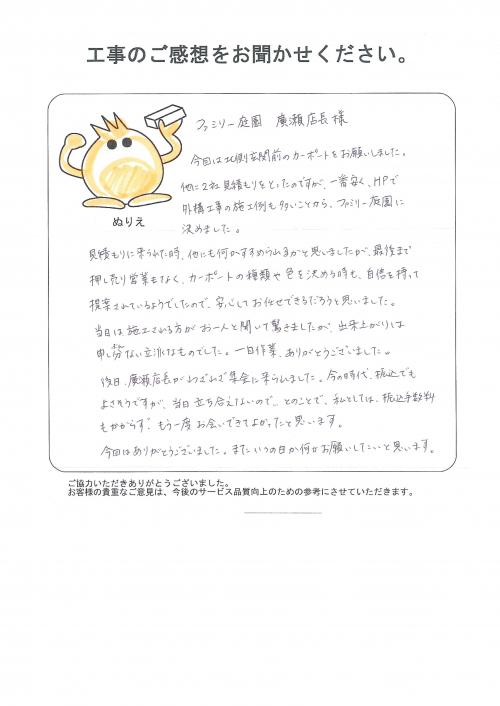 工事のご感想をお聞かせください。
ファミリー庭園 廣瀬店長様
今回は北側玄関前のカーポートをお願いしました。
他に2社見積もりをとったのですが、一番安く、HPで
外構工事の施工例も多いことから、ファミリー庭園に
決めました。
ぬりえ
見積もりに来られた時、他にも何かすすめられるかと思いましたが、最後まで
押し売り営業もなく、カーポートの種類や色を決める時も、自信を持って
提案されているようでしたので、安心してお任せできるだろうと思いました。
当日は施工される方がお一人と聞いて驚きましたが、出来上がりは
申し分ない立派なものでした。一日作業、ありがとうございました。
後日、廣瀬店長がわざわざ集金に来られました。今の時代、振込でも
よさそうですが、当日立ち会えないので…とのことで、私としては、振込手数料
もかからず、もう一度お会いできてよかったと思います。
今回はありがとうございました。またいつの日か何かお願いしたいと思います。
ご協力いただきありがとうございました。
お客様の貴重なご意見は、今後のサービス品質向上のための参考にさせていただきます。